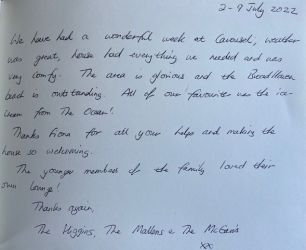 2-9 July 2022
We have had a wonderful week at Carousel, weather
was great, house had everything we needed and was
very comfy. The area is glorious and the Broadhaven
beach is outstanding. All of our favourites was the ice-
cream from The Ocean!.
Thanks Fiona for all your help and making the
house so welcoming.
The younger members of the family loved their
own lounge!
Thanks again,
The Higgins, The Mallons & The
xx